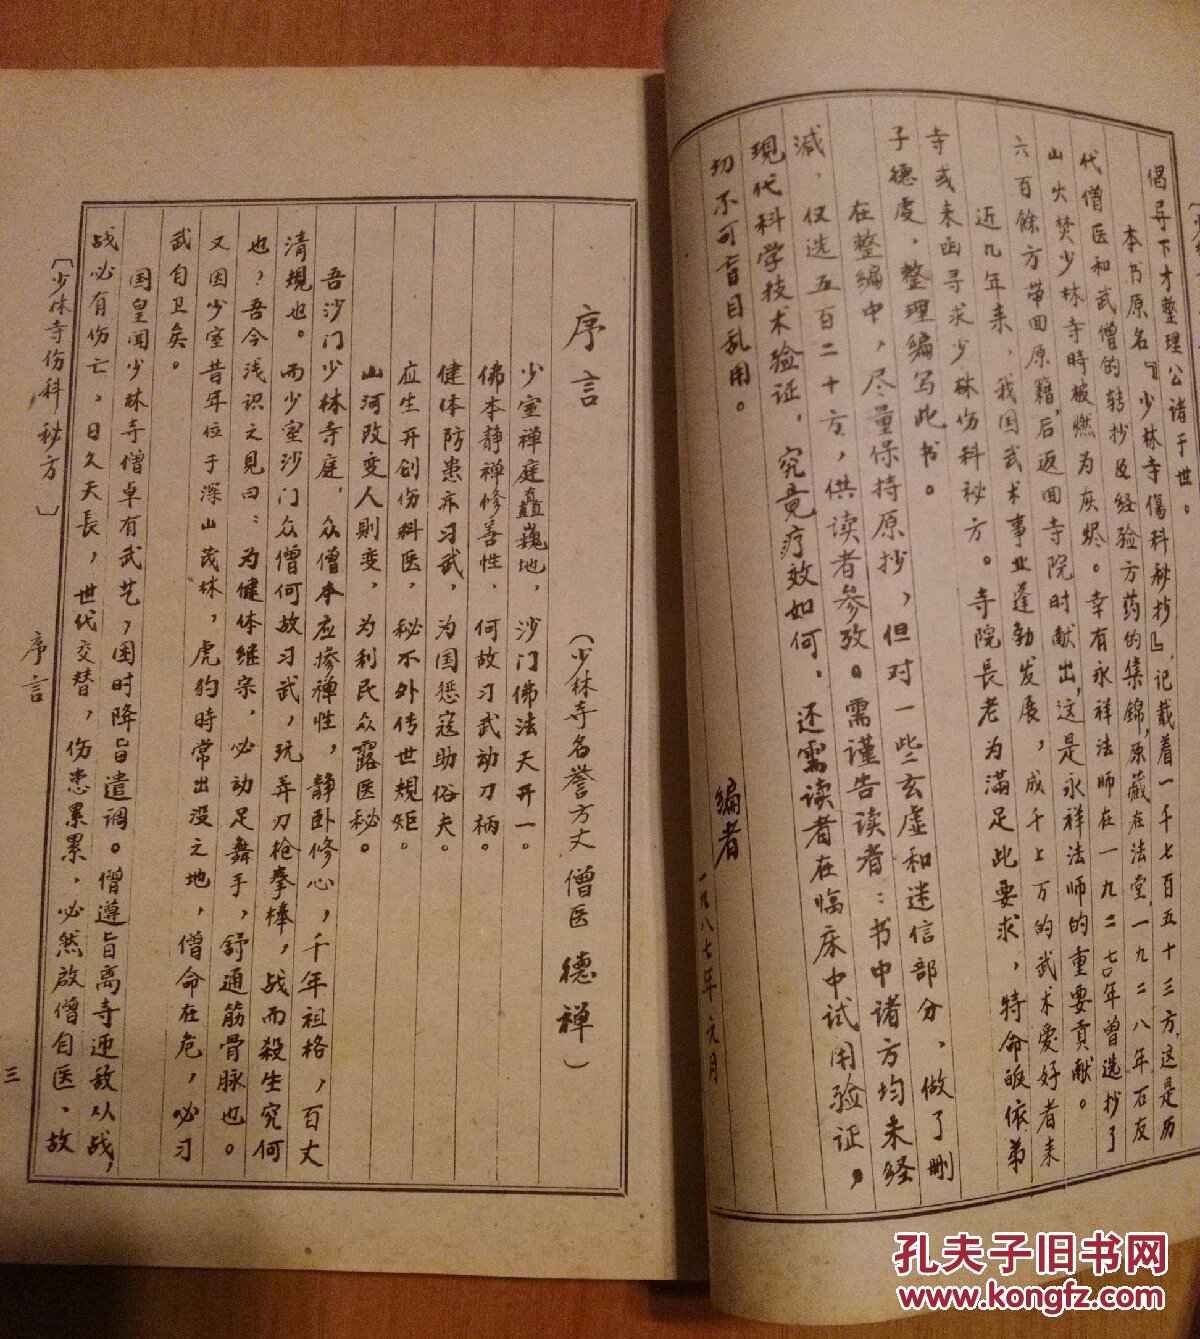 倡导下才整理公诸于世。
本书原名『少林寺傷科秘抄』，记载着一千七百五十三方，这是历
代僧医和武僧的转抄及经验方药的集錦，原藏在法堂，一九二八年石友
山火焚少林寺時被燃为灰烬。幸有永祥法师在一九二七〇年曾选抄了
六百餘方带回原籍，后返回寺院时献出，这是永祥法师的重要貢献。
近几年来，我国武术事业蓬勃发展，成千上万的武术爱好者来
寺或来函寻求少林伤科秘方。寺院長老为滿足此要求，特命皈依弟
子德虔，整理编写此书。
在整编中，尽量保持原抄，但对一些玄虚和迷信部分，做了删
减，仅选五百二十方，供读者参攷。需谨告读者：书中诸方均未经
現代科学技术验证，究竟疗效如何，还需读者在临床中试用验证。
切不可盲目乱用。
编者
一九八七年元月
序言
（少林寺名誉方丈 僧医 德禅）
少室禅庭矗巍地，沙门佛法天开一。
佛本静禅修善性，何故习武动刀柄。
健体防患亦习武，为国惩寇助俗夫。
应生开创伤科医，秘不外传世規矩。
山河改变人則变，为利民众露医秘。
吾沙门少林寺庭，众僧本应掺禅性，静卧修心，千年祖格，百丈
清規也。而少室沙门众僧何故习武，玩弄刀枪拳棒，战而殺生究何
也，吾今浅识之見曰：为健体继宗，必动足舞手，舒通筋骨脉也。
又因少室昔年位于深山茂林，虎豹時常出没之地，僧命在危，必习
武自卫矣。
国皇闻少林寺僧卓有武艺，国时降旨遣调。僧遵旨离寺迎敌从战，
战必有伤亡，日久天長，世代交替，伤患累累，必然啟僧自医，故
〔少林寺伤科秘方〕
序言
三
孔夫子旧书网
www.kongfz.com